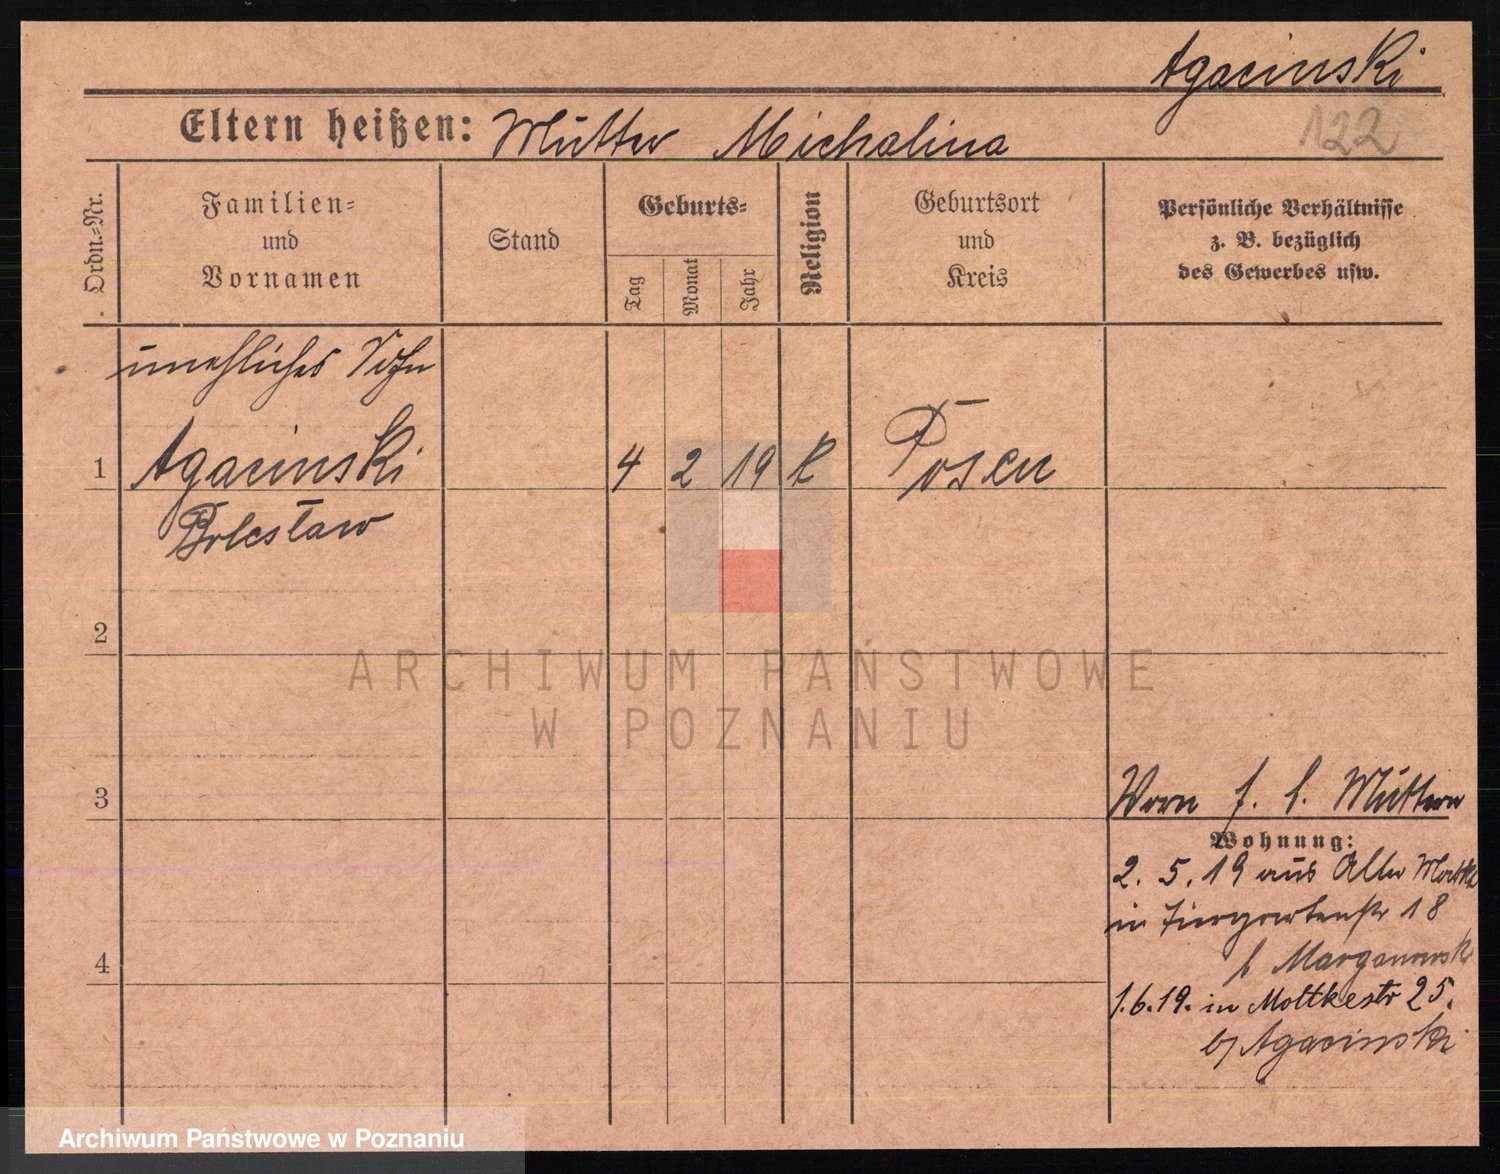 Agacinski
122
Eltern heißen: Mutter Michalina
Ordn.-Nr.
Familien-
und
Vornamen
Stand
Geburts-
Tag
Monat
Jahr
Religion
Geburtsort
und
Kreis
Persönliche Verhältnisse
z. B. bezüglich
des Gewerbes usw.
unehliches Sohn
1 Agacinski 4 2 19 k Posen
Bolesław
2
3
4
f. b. Muttern
Wohnung:
2. 5. 19 aus Alter Markt
in Tiergartenstr 18
b
1.6.19. in Moltkestr 25.
b/ Agacinski
ARCHIWUM PAŃSTWOWE
W POZNANIU
Archiwum Państwowe w Poznaniu